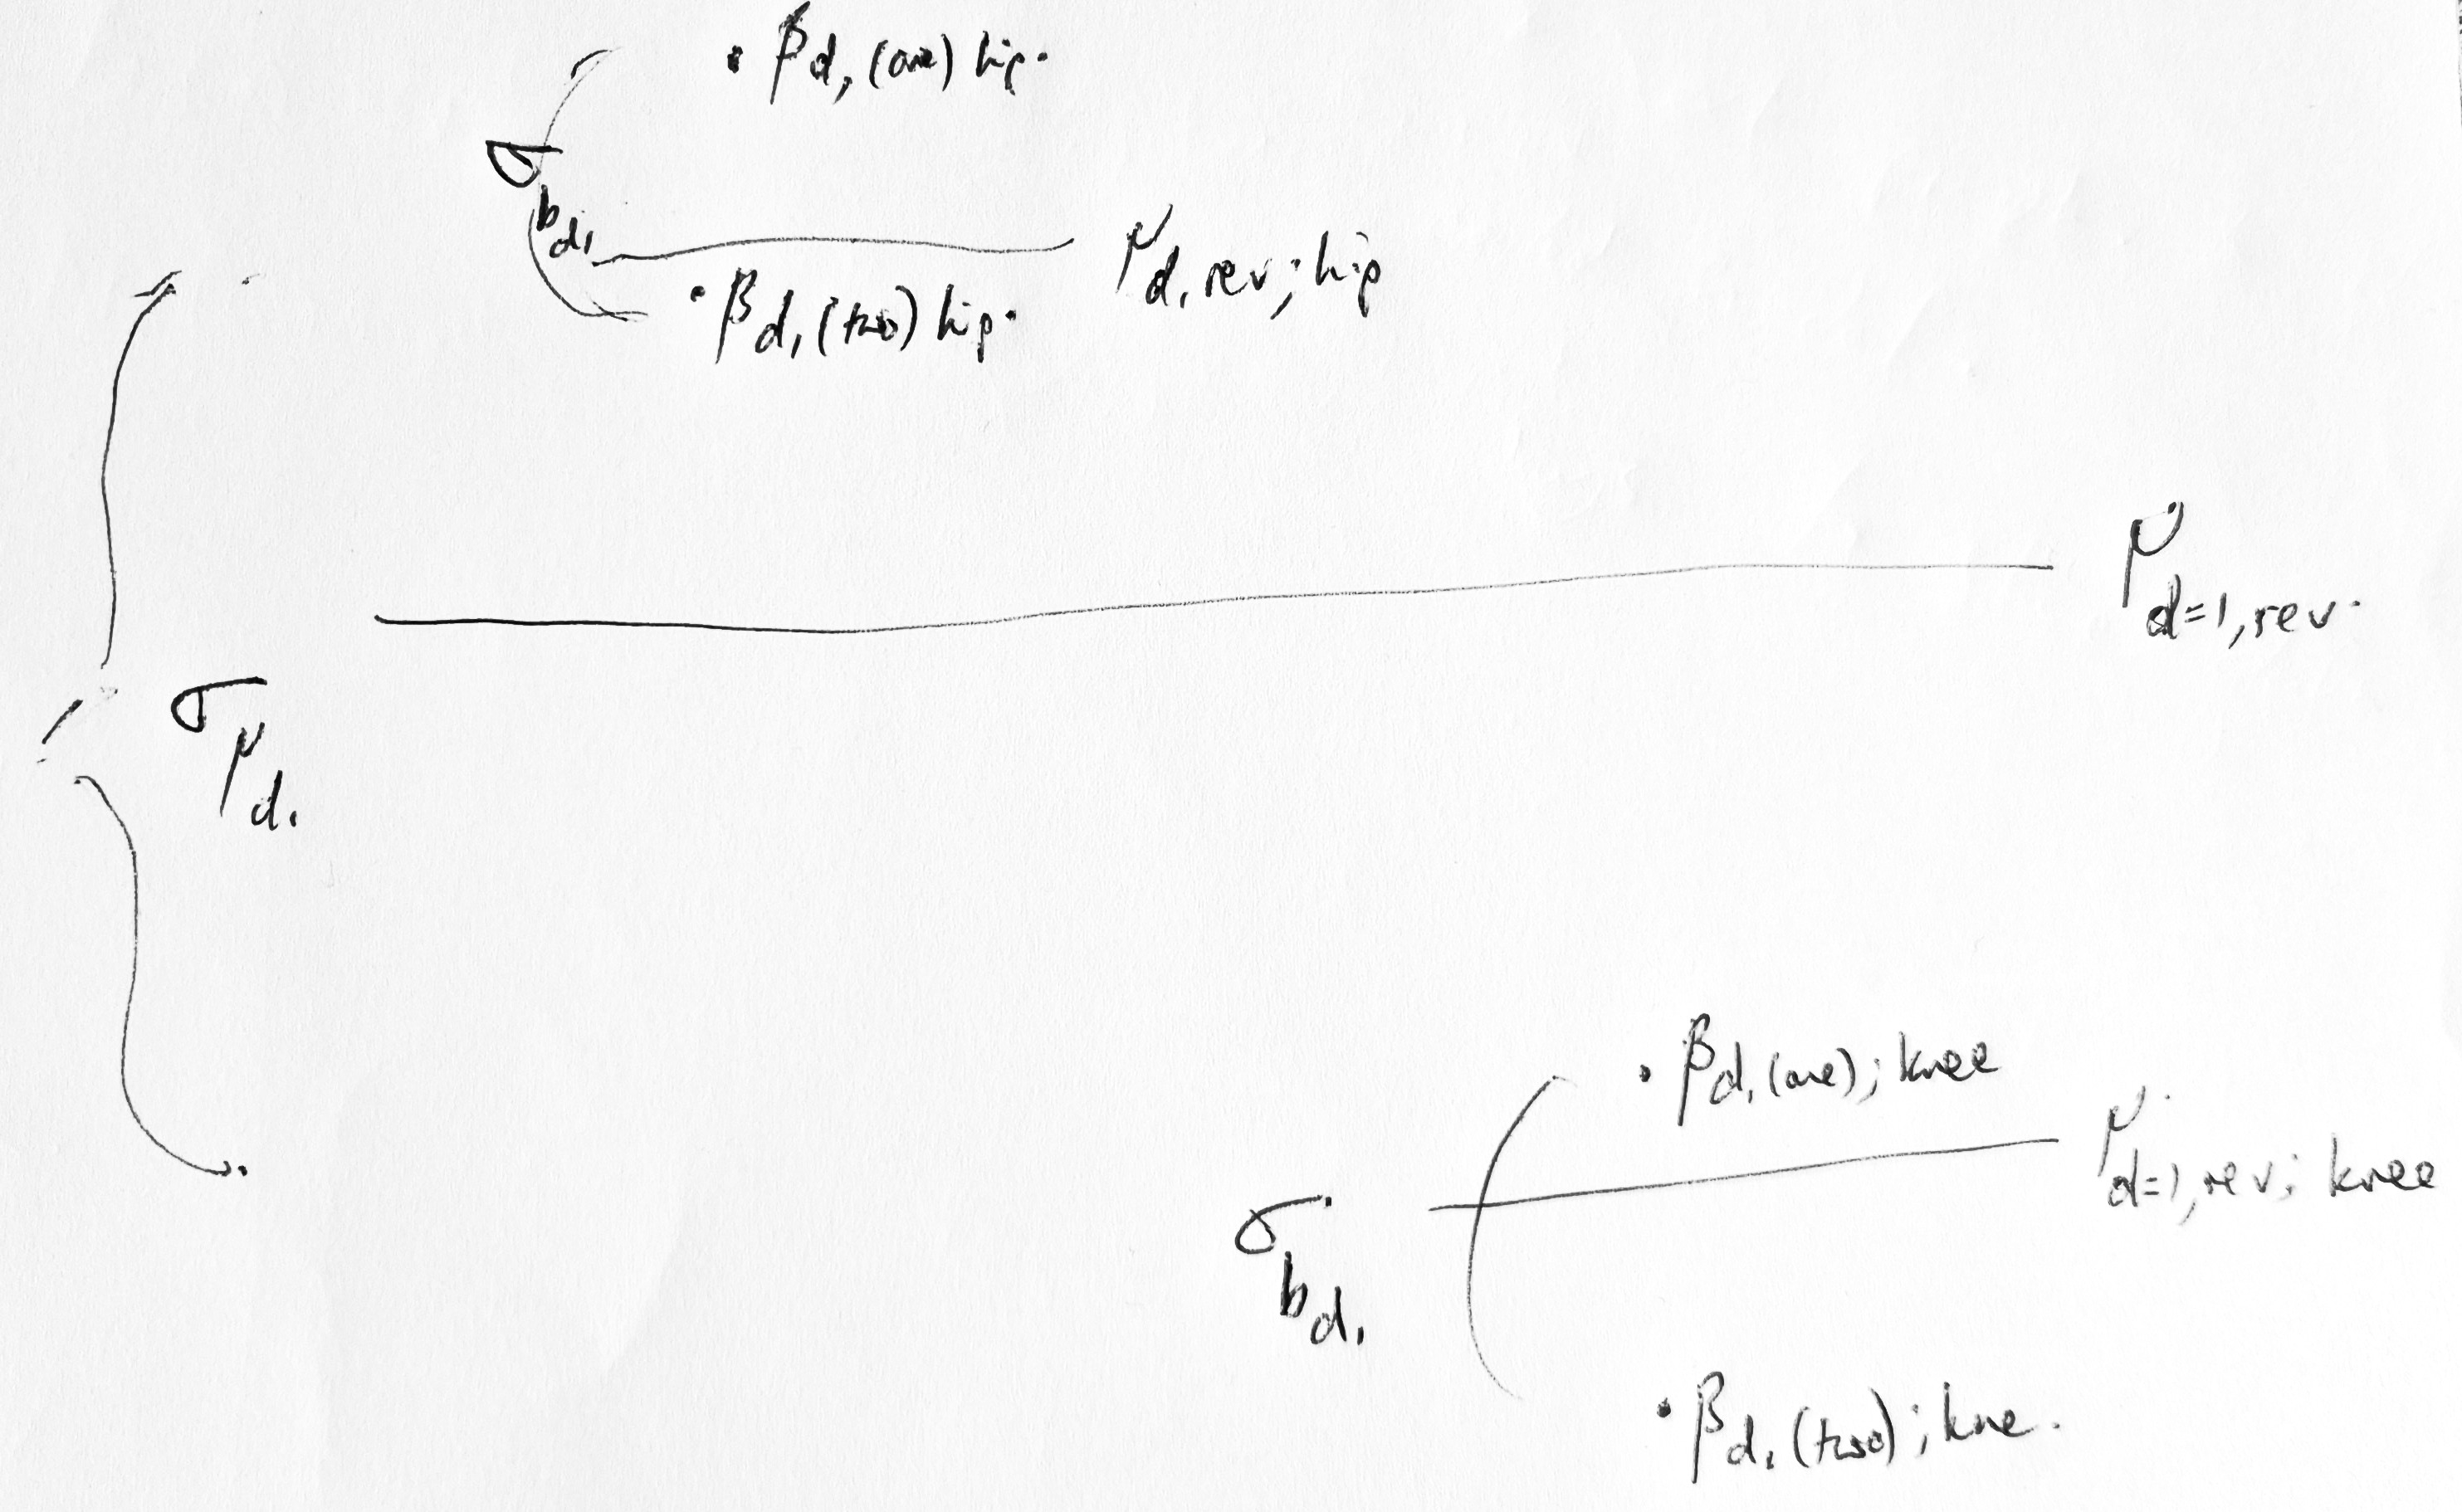 • β d, (one) hip.
σ b d,
μ d, rev; hip
• β d, (two) hip.
μ d=1, rev.
σ μ d,
• β d, (one); knee
μ d=1, rev; knee
σ b d,
• β d, (two); kne.